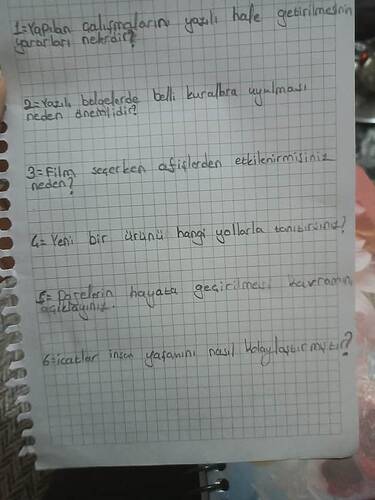 1=Yapılan çalışmaların yazılı hale getirilmesinin
yararları nelerdir?
2=Yazılı belgelerde belli kurallara uyulması
neden önemlidir?
3=Film seçerken afişlerden etkilenirmisiniz
neden?
4=Yeni bir ürünü hangi yollarla tanıtırsınız?
5= hayata geçirilmesi kavramını
açıklayınız.
6=icatlar insan yaşamını nasıl kolaylaştırmıştır?